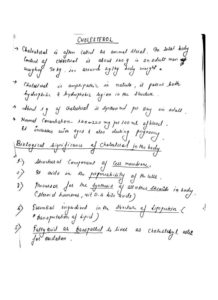 CHOLESTEROL
* Cholesterol is often called as animal sterol. The total body
content of cholesterol is about 140 g in an adult man
weighing 70 kg. ie. around 2g/kg body weight.
* Cholesterol is amphipathic in nature, it posses both
hydrophilic & hydrophobic region in the structure.
* About 1 g of cholesterol is synthesized per day in adult.
* Normal Concentration: 150-225 mg per 100 ml of blood.
It increases with ages & also during pregnancy.
Biological significance of cholesterol in the body.
1) Structural Component of cell membrane.
2) It aids in the permeability of the cells.
3) Precursor for the synthesis of all other steroids in body.
(steroid hormones, vit. D & bile acids)
4) Essential ingredient in the structure of lipoprotein (
transportation of lipid)
5) Fatty acid are transported to liver as cholesteryl ester
for oxidation.